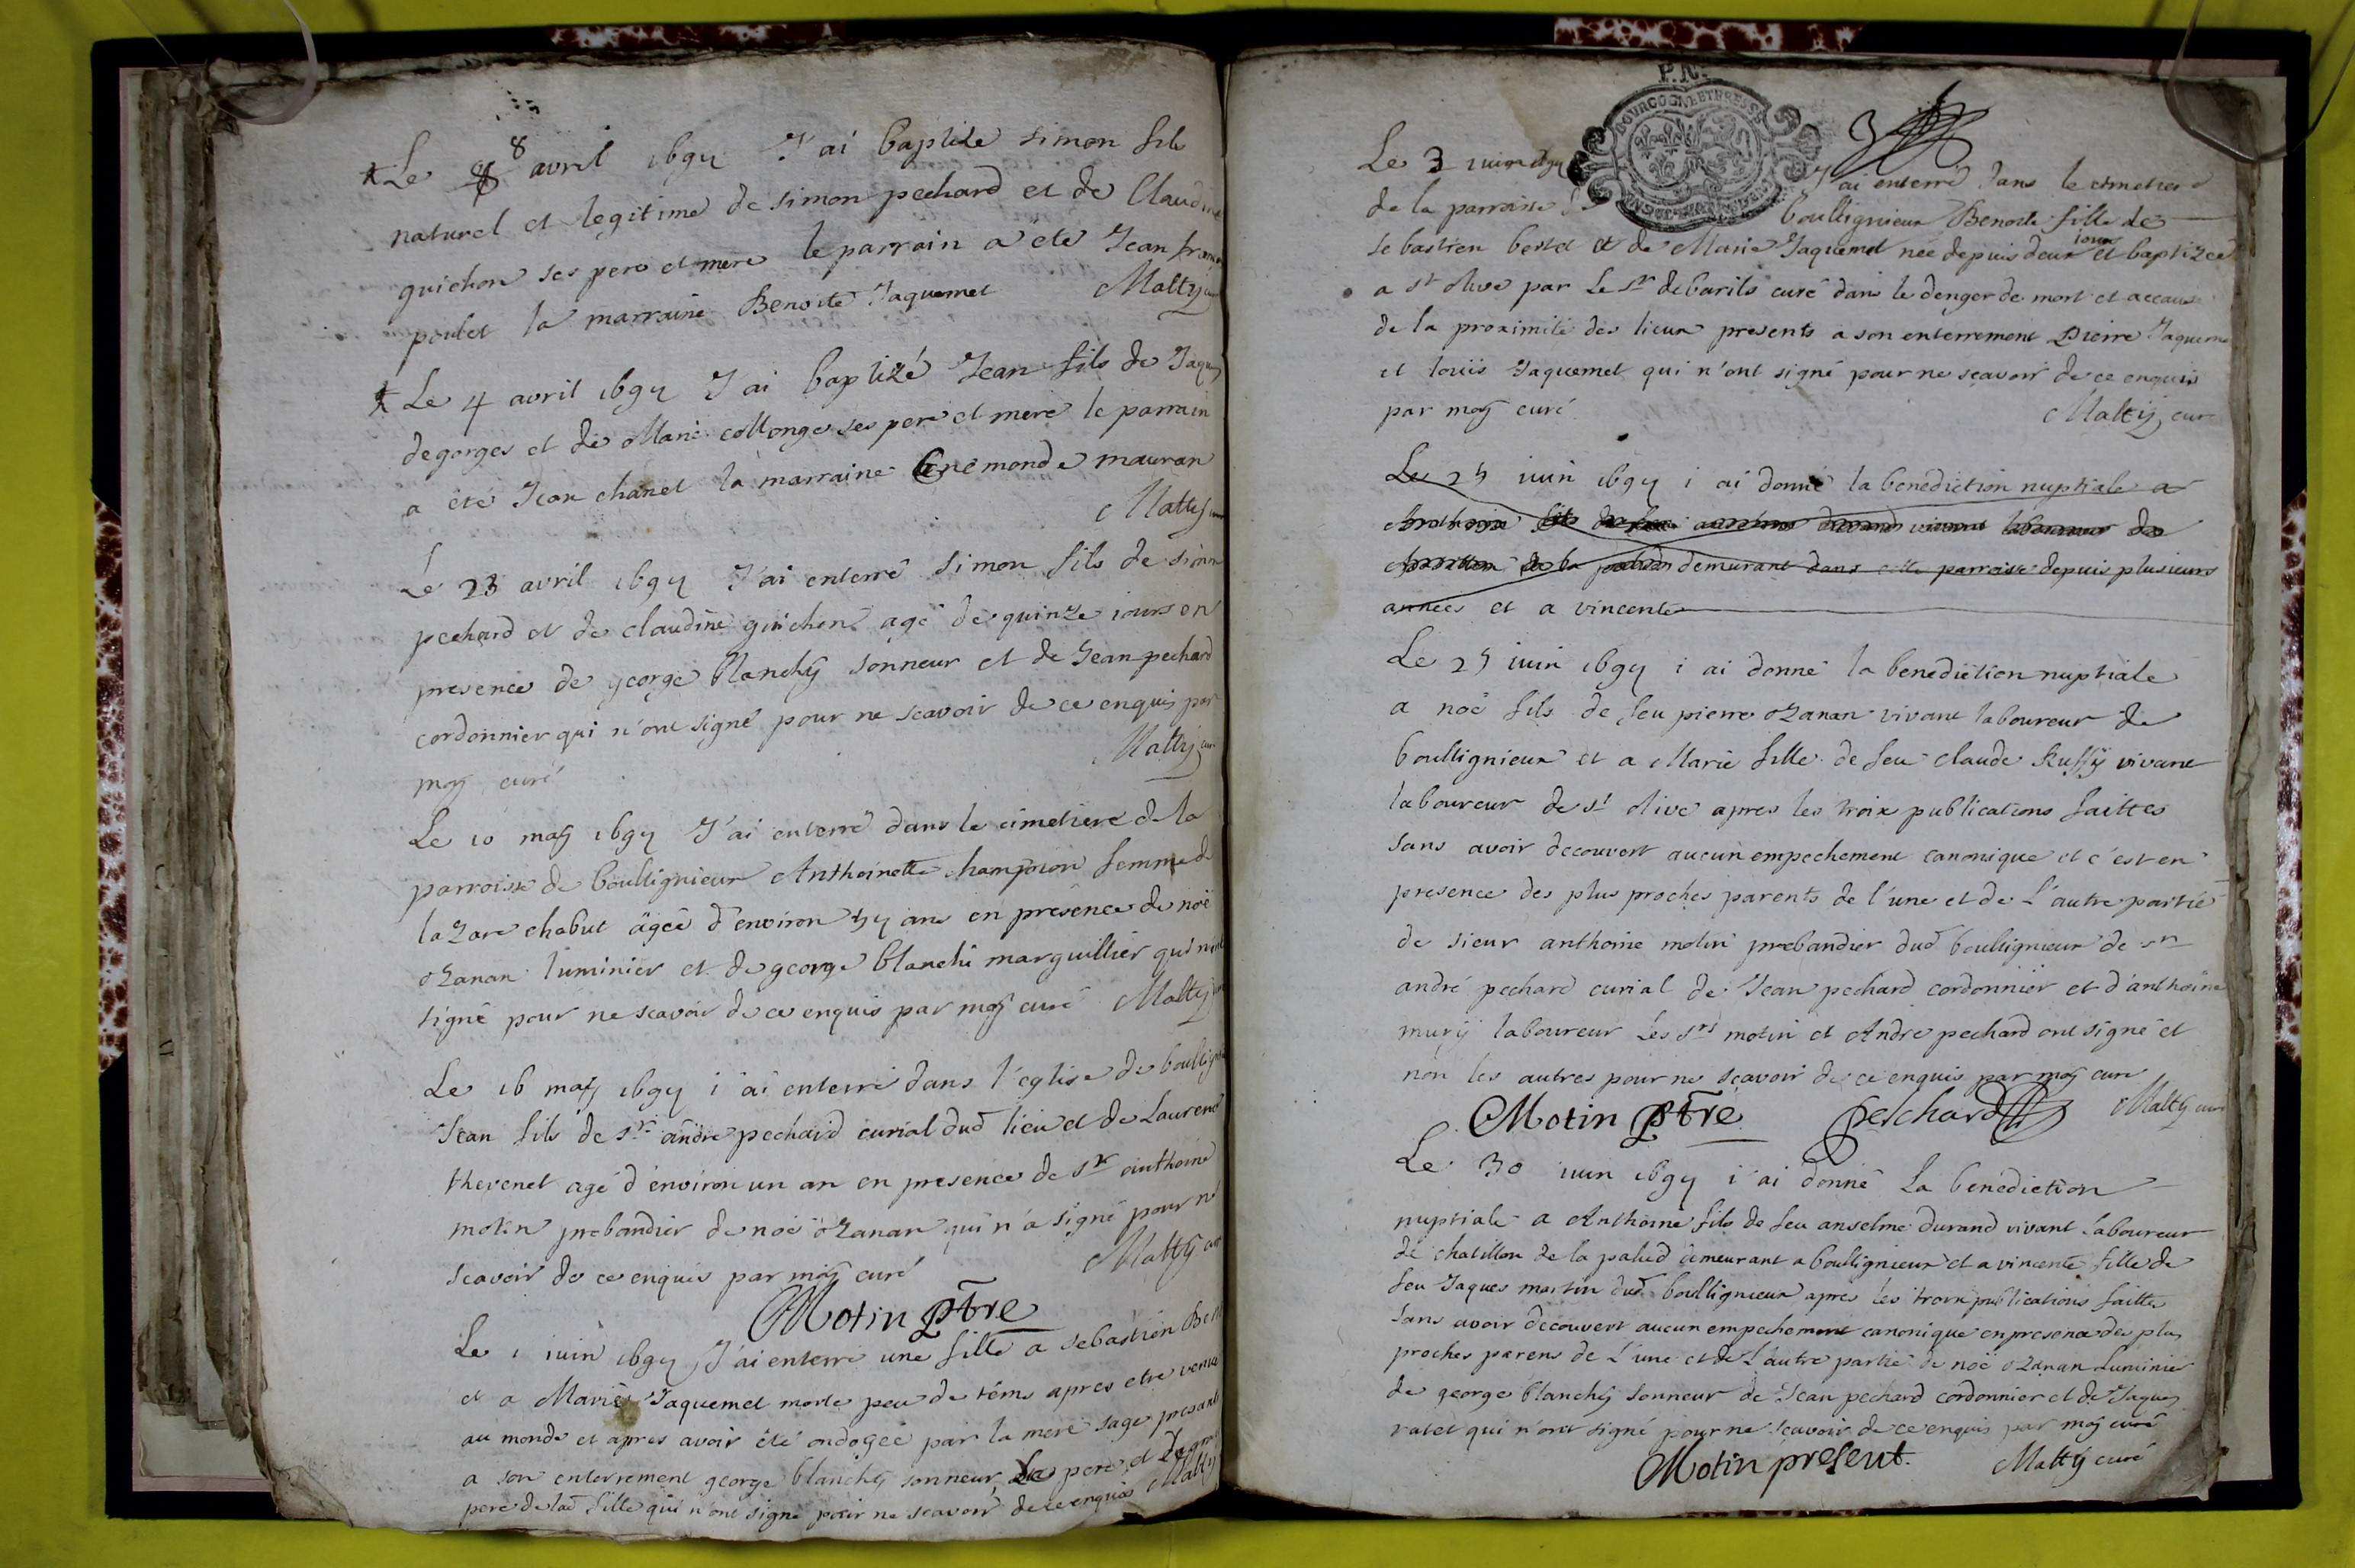 Le 8 avril 1694 J'ai baptize simon fils
naturel et legitime de simon pechard et de Claudine
guichon ses pere et mere le parrain a ete Jean
poulet la marraine Benoite Jaquemet Malty
Le 4 avril 1694 J'ai baptizé Jean fils de Jaques
degorges et de Marie collonge ses pere et mere le parrain
a été Jean chanel la marraine Enemonde mauran
Malty
Le 23 avril 1694 J'ai enterré simon fils de simon
pechard et de claudine guichon agé de quinze jours en
presence de george blanchy sonneur et de Jean pechard
cordonnier qui n'ont signé pour ne scavoir de ce enquis par
moy curé Malty
Le 10 may 1694 J'ai enterré dans le cimetiere de la
parroisse de boulligneux Anthoinette champion femme de
lazare chabut agée d'environ ans en presence de noé
ozanan luminier et de george blanchi marguillier qui
signé pour ne scavoir de ce enquis par moy curé Malty
Le 16 may 1694 i ai enterré dans l'eglise de
Jean fils de sr andre pechard curial dud lieu et de Laurence
thevenet agé d'environ un an en presence de sr anthoine
motin prebandier de noé ozanan qui n'a signé pour ne
scavoir de ce enquis par moy curé Malty
Motin ptre
Le 1 iuin 1694 J'ai enterré une fille a sebastien
et a Marie Jaquemet morte peu de téms apres etre venue
au monde et apres avoir été ondoyée par la mere sage presant
a son enterrement george blanchy sonneur, pere et
pere de lad fille qui n'ont signé pour ne scavoir de ce enquis Malty
P.R.
BOURGOGNE
3
Le 3 iuin 1694 J'ai enterré dans le cimetiere
de la parroisse boullignieux Benoite fille de
sebastien bertet et de Marie Jaquemet née depuis deux iours et baptizée
a st olive par le sr debarils curé dans le denger de mort et accause
de la proximité des lieux presents a son enterrement pierre
et loüis Jaquemet qui n'ont signé pour ne sçavoir de ce enquis
par moy curé Malty curé
Le 25 iuin 1694 i ai donné la benediction nuptiale a
Anthoine fils de feu
de la palud demurant dans cette parroisse depuis plusieurs
années et a vincente
Le 25 iuin 1694 i ai donné la benediction nuptiale
a noé fils de feu pierre ozanan vivant laboureur de
boullignieux et a Marie fille de feu claude Ruffy vivant
laboureur de st olive apres les troix publications faittes
sans avoir decouvert aucun empechement canonique et c'est en
presence des plus proches parents de l'une et de l'autre partie
de sieur anthoine motin prebandier dud boullignieux de sr
andré pechard curial de Jean pechard cordonnier et d'anthoine
mury laboureur les srs motin et Andre pechard ont signé et
non les autres pour ne scavoir de ce enquis par moy curé
Motin ptre peschard Malty curé
Le 30 iuin 1694 i'ai donné La benediction
nuptiale a Anthoine fils de feu anselme durand vivant laboureur
de chatillon de la palud demeurant a boullignieux et a vincente fille de
feu Jaques martin dud boullignieux apres les troix publications faittes
sans avoir decouvert aucun empechement canonique en presence des plus
proches parens de l'une et de l'autre partie de noé ozanan Luminier
de george blanchy sonneur de Jean pechard cordonnier et de Jaques
ratet qui n'ont signé pour ne scavoir de ce enquis par moy curé
Motin present. Malty curé